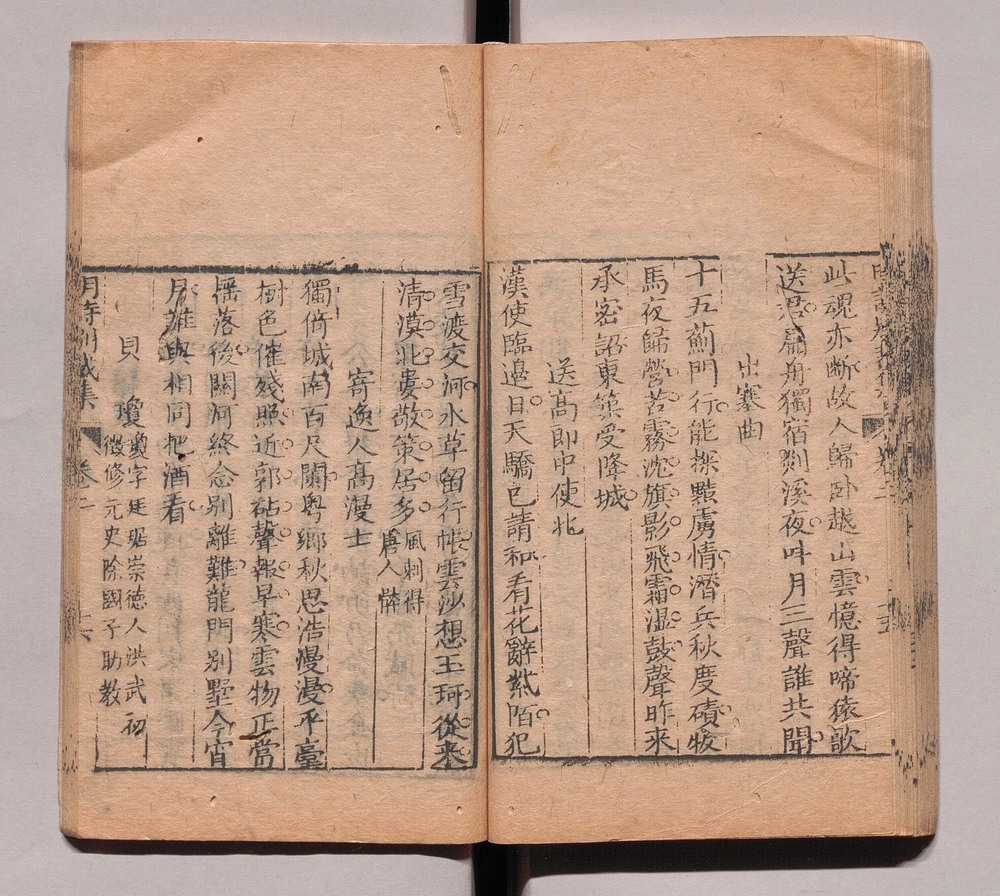 此魂亦斷故人歸卧越山雲憶得啼猿歌
送君扁舟獨宿剡溪夜呌月三聲誰共聞
出塞曲
十五薊門行能探黠虜情潛兵秋度磧牧
馬夜歸營苦霧沈旗影飛霜濕鼓聲昨来
承密詔東築受降城
送高郎中使北
漢使臨邉日天驕已請和看花辭紫陌犯
雪渡交河水草留行帳雲沙想玉珂從来
清漠北婁敬策居多
風刺得
唐人體
寄逸人高漫士
獨倚城南百尺闌粤鄉秋思浩漫漫平臺
樹色催殘照近郭砧聲報早寒雲物正當
揺落後關河終念别離難龍門别墅今宵
月誰與相同把酒看
貝瓊
瓊字廷琚崇德人洪武初
徴修元史除國子助教
明詩別裁集
卷二